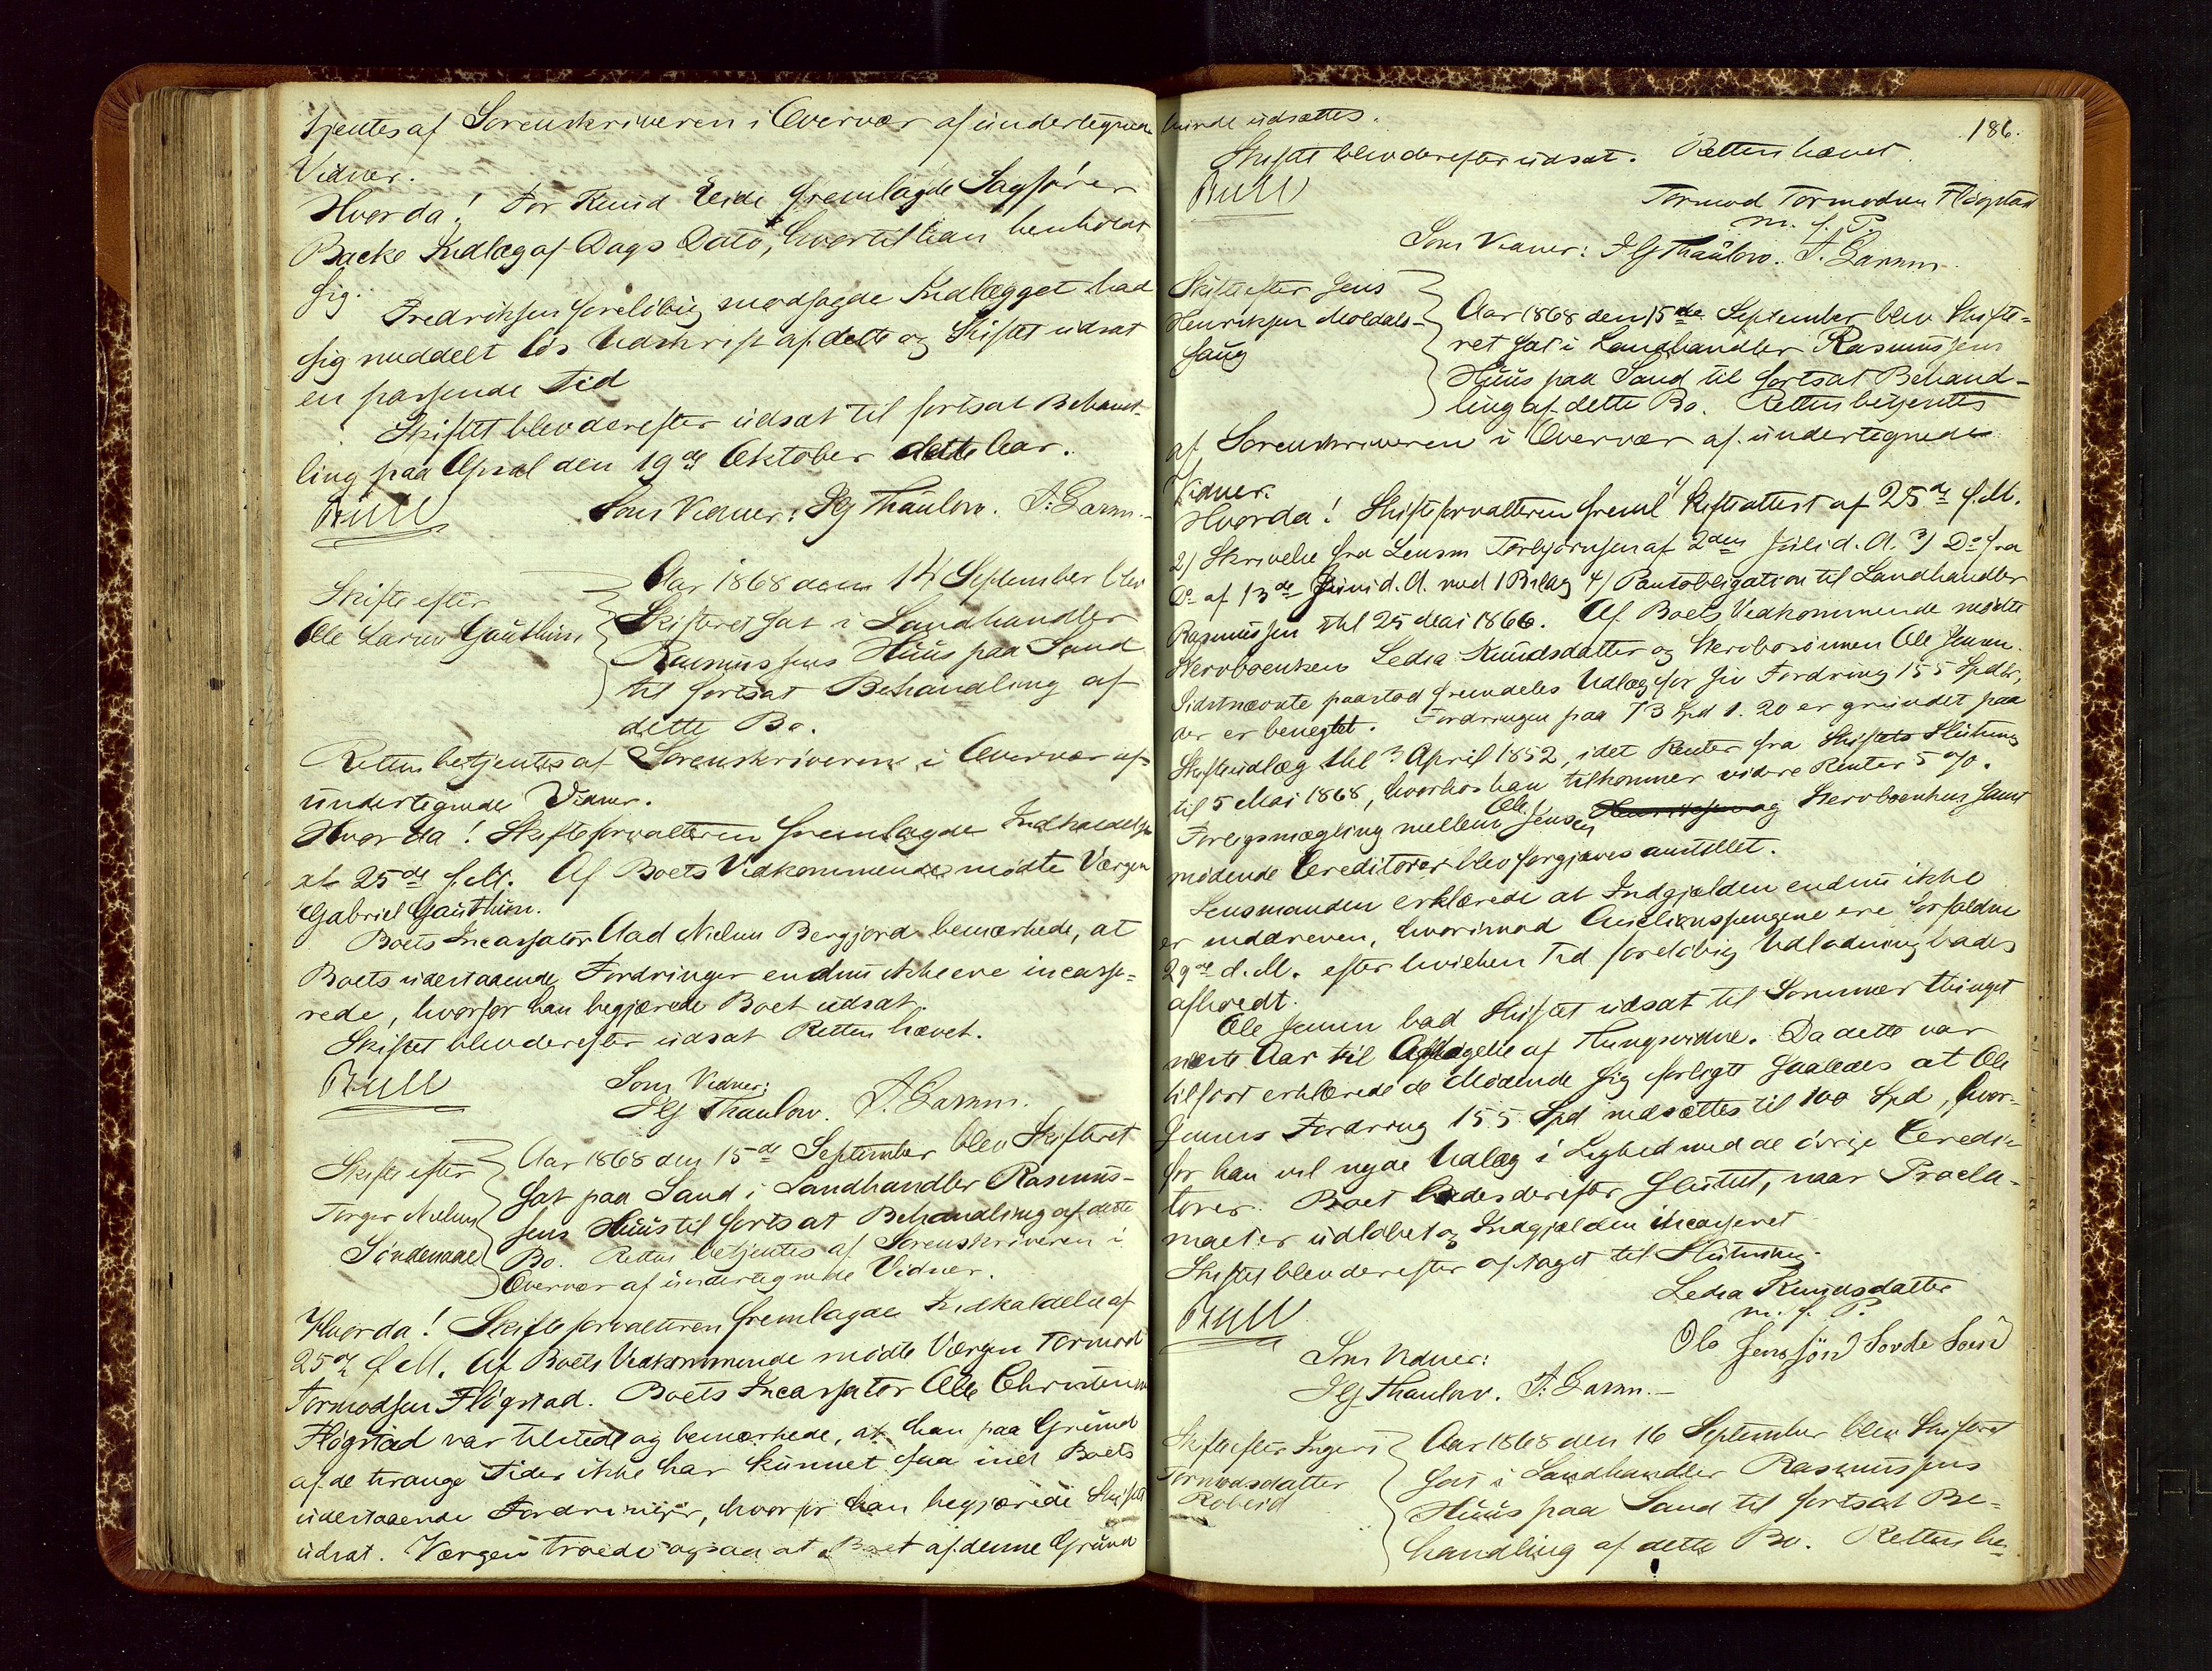 tjentes af Sorenskriveren i Overvær af undertegnede
Vidner.
Hvorda! For Knud Eide fremlagde Sagfører
Backe Indlæg af Dags Dato, hvortil han henholdt
sig.
Fredriksen foreløbig modsagde Indlægget bad
sig meddelt løs Udskrift af dette og Skiftet udsat
en passende Tid
Skiftet blev derefter udsat til fortsat Behand-
ling paa Øpsal den 19de Oktober dette Aar.
Bull
Som Vidner: Hg Thaulow. S. Garm.
Skifte efter
Ole Larsen Gauthun
Aar 1868 den 14 September blev
Skifteret sat i Landhandler
Rasmussens Huus paa Sand
til fortsat Behandling af
dette Bo.
Retten betjentes af Sorenskriveren i Overvær af
undertegnede Vidner.
Hvorda! Skifteforvalteren fremlagde Indkaldelse
af 25de f.M. Af Boets Vedkommende mødte Værgen
Gabriel Gauthun.
Boets Incassator Aad Nielsen Bergjord bemærkede, at
Boets udestaaende Fordringer endnu ikke ere incasse-
rede, hvorfor han begjærede Boet udsat.
Skiftet blev derefter udsat Retten hævet.
Bull
Som Vidner:
Hg Thaulow. S. Garm.
Skifte efter
Torger Nielsen
Søndenaae
Aar 1868 den 15de September blev Skifteret
sat paa Sand i Landhandler Rasmus-
sens Huus til fortsat Behandling af dette
Bo. Retten betjentes af Sorenskriveren i
Overvær af undertegnede Vidner.
Hvorda! Skifteforvalteren fremlagde Indkaldelse af
25de f.M. Af Boets Vedkommende mødte Værgen Tormod
Tormodsen Fløgstad. Boets Incassator Ole Christensen
Fløgstad var tilstede og bemærkede, at han paa Grund
af de trange Tider ikke har kunnet faa ind Boets
udestaaende Fordringer, hvorfor han begjærede Skiftet
udsat. Værgen troede ogsaa at Boet af denne Grund
186.
burde udsættes.
Skiftet blev derefter udsat. Retten hævet
Bull
Tormod Tormodsen Fløgstad
m. f. P.
Som Vidner: Hg Thaulow. S. Garm.
Skifte efter Jens
Henriksen Moldals-
haug
Aar 1868 den 15de September blev Skifte-
ret sat i Landhandler Rasmussens
Huus paa Sand til fortsat Behand-
ling af dette Bo. Retten betjentes
af Sorenskriveren i Overvær af undertegnede
Vidner.
Hvorda! Skifteforvalteren freml 1/ Skifteattest af 25de f.M.
2/ Skrivelse fra Lensm Torbjørnsen af 2den Juli d.A. 3/ Do fra
Do af 13de Juni d.A. med 1 Bilag 4/ Pantobligation til Landhandler
Rasmussen dtl 25 Mai 1866. Af Boets Vedkommende mødte
Stervboenken Ledsa Knudsdatter og Stervbosønnen Ole Jensen.
Sidstnævnte paastod fremdeles Udlæg for sin Fordring 155 Spdlr,
der er benegtet. Fordringen paa 73 Spd 1. 20 er grundet paa
Skifteudlæg dtl 3 April 1852, idet Renter fra Skiftets Slutning
til 5 Mai 1868, hvorhos han tilkommer videre Renter 5 %.
Forligsmægling mellem Ole Jensen Henriksen og Stervboenken samt
mødende Creditorer blev forgjæves anstillet.
Lensmanden erklærede at Indgjælden endnu ikke
er inddreven, hvorimod Auctionspengene ere forfaldne
29de d.M. efter hvilken Tid foreløbig Udlodning bades
afholdt.
Ole Jensen bad Skiftet udsat til Sommerthinget
næste Aar til Optagelse af Thingsvidne. Da dette var
tilført erklærede de Mødende sig forligt saaledes at Ole
Jensens Fordring 155 Spd nedsættes til 100 Spd, hvor-
for han vil nyde Udlæg i Lighed med de øvrige Credi-
torer. Boet bades derefter sluttet, naar Procla-
maet er udløbet og Indgjælden incasseret
Skiftet blev derefter optaget til Slutning.
Bull
Ledsa Knudsdatter
m. f. P.
Ole Jensøn Sovde
Som Vidner:
Hg Thaulow. S. Garm.
Skifte efter Ingeri
Tormodsdatter
Aar 1868 den 16 September blev Skifteret
sat i Landhandler Rasmussens
Huus paa Sand til fortsat Be-
handling af dette Bo. Retten be-